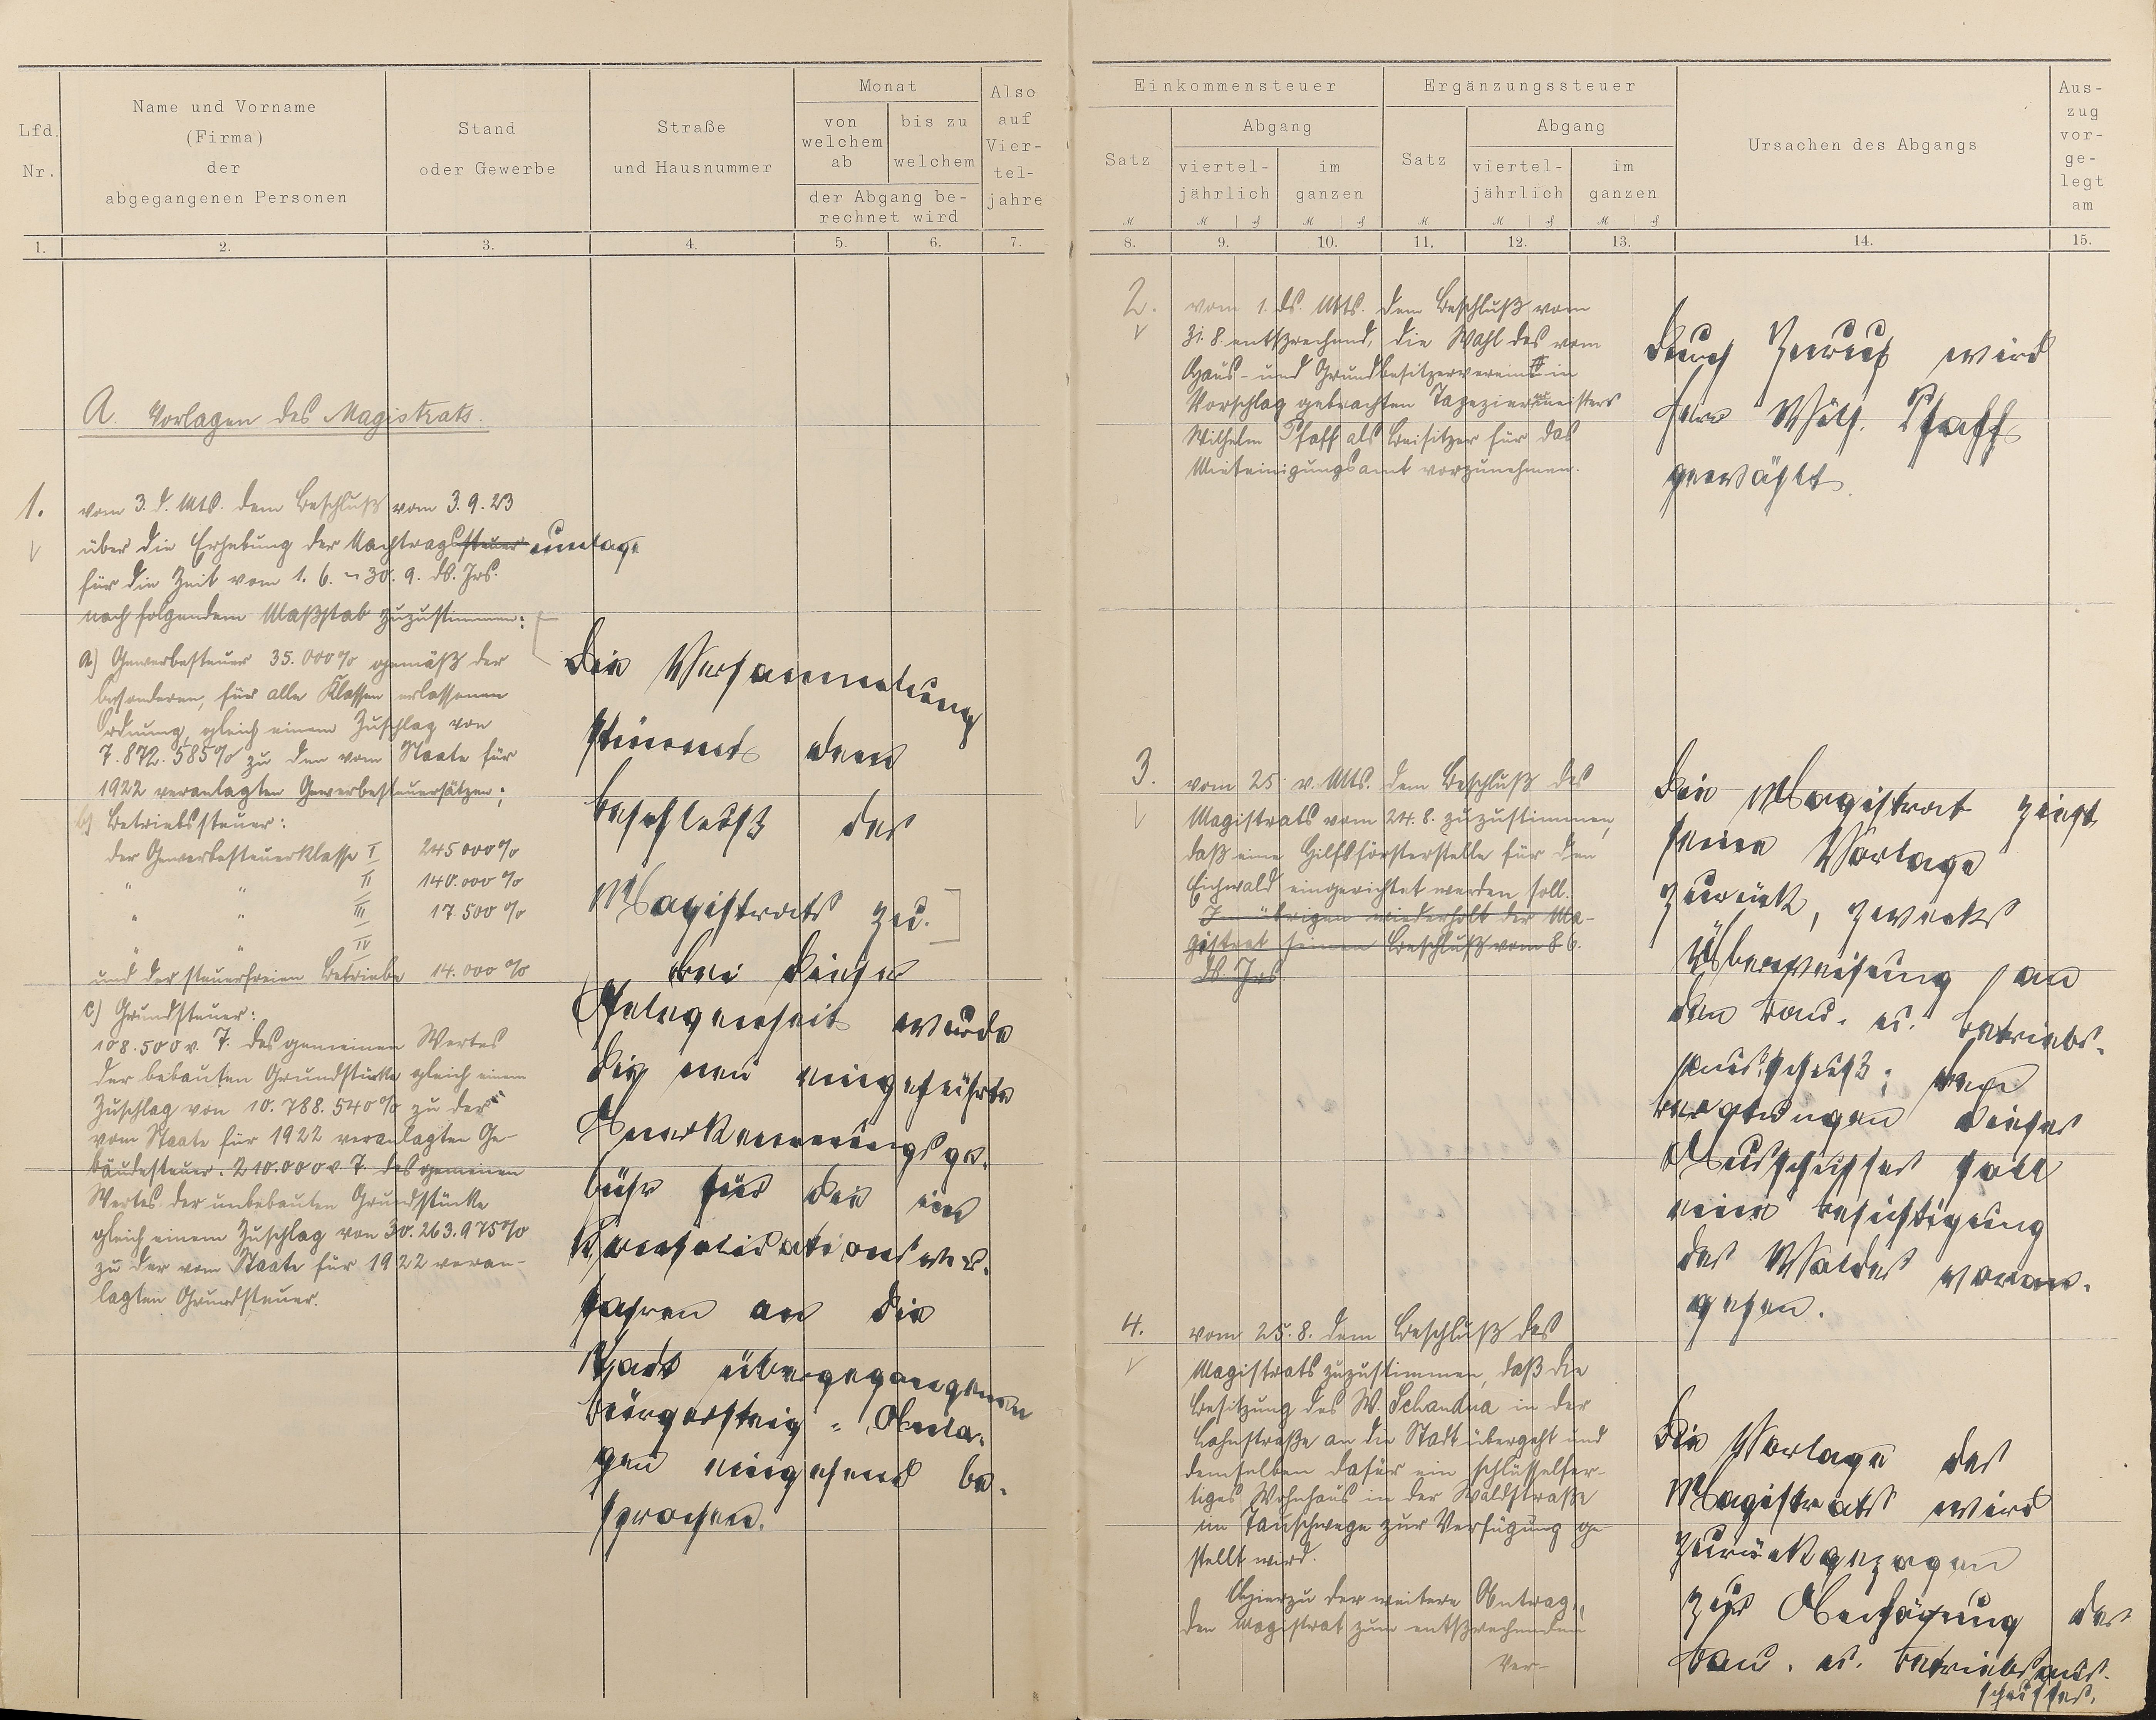 Lfd. Nr.
Name und Vorname
(Firma)
der
abgegangenen Personen
Stand
oder Gewerbe
Straße
und Hausnummer
Monat
von
welchem
ab
bis zu
welchem
der Abgang be-
rechnet wird
Also
auf
Vier-
tel-
jahre
1. 2. 3. 4. 5. 6. 7.
A. Vorlagen des Magistrats.
1. vom 3. d. Mts. dem Beschluß vom 3.9.23
über die Erhebung der Nachtragssteuer umlage
für die Zeit vom 1.6. - 30.9. ds. Jrs.
nach folgendem Maßstab zuzustimmen:
a) Gewerbesteuer 35.000% gemäß der
besonderen, für alle Klassen erlassenen
Ordnung, gleich einem Zuschlag von
7.872.585% zu den vom Staate für
1922 veranlagten Gewerbesteuersätzen;
b) Betriebssteuer:
der Gewerbesteuerklasse I 245000%
" " II 140.000%
" " III 17.500%
" " IV
und der steuerfreien Betriebe 14.000%
c) Grundsteuer:
108.500 v. T. des gemeinen Wertes
der bebauten Grundstücke gleich einem
Zuschlag von 10.788.540% zu der
vom Staate für 1922 veranlagten Ge-
bäudesteuer. 210.000 v. T. des gemeinen
Wertes der unbebauten Grundstücke
gleich einem Zuschlag von 30.263.975%
zu der vom Staate für 1922 veran-
lagten Grundsteuer.
Die Versammlung
stimmt dem
Beschluß des
Magistrats zu.
Bei dieser
Gelegenheit wurde
die neu eingeführte
Anerkennungsge-
bühr für die im
Konsolidationsver-
fahren an die
Stadt übergegangenen
Bürgersteig-Anla-
gen eingehend be-
sprochen.
Einkommensteuer
Satz
Abgang
viertel-
jährlich
im
ganzen
Ergänzungssteuer
Satz
Abgang
viertel-
jährlich
im
ganzen
Ursachen des Abgangs
Aus-
zug
vor-
ge-
legt
am
8. 9. 10. 11. 12. 13. 14. 15.
2. vom 1. ds. Mts. dem Beschluß vom
31.8. entsprechend, die Wahl des vom
Haus- und Grundbesitzerverein in
Vorschlag gebrachten Tapeziermeisters
Wilhelm Pfaff als Beisitzer für das
Mieteinigungsamt vorzunehmen.
Durch Zuruf wird
Herr Wilh. Pfaff
gewählt.
3. vom 25. v. Mts. dem Beschluß des
Magistrats vom 24.8. zuzustimmen,
daß eine Hilfsförsterstelle für den
Eichwald eingerichtet werden soll.
Im übrigen wiederholt der Ma-
gistrat seinen Beschluß vom 8.6.
ds. Jrs.
Der Magistrat zieht
seine Vorlage
zurück, zwecks
Überweisung an
den Bau- u. Betriebs-
ausschuß; dem
dieses
Ausschusses soll
eine Besichtigung
des Waldes voran-
gehen.
4. vom 25.8. dem Beschluß des
Magistrats zuzustimmen, daß die
Besitzung des W. Schandua in der
Lahnstraße an die Stadt übergeht und
demselben dafür ein schlüsselfer-
tiges Wohnhaus in der Waldstraße
im Tauschwege zur Verfügung ge-
stellt wird.
Hierzu der weitere Antrag,
den Magistrat zum entsprechenden
Ver-
Die Vorlage des
Magistrats wird
zurückgezogen
zur Anhörung des
Bau- u. Betriebsaus-
schusses.